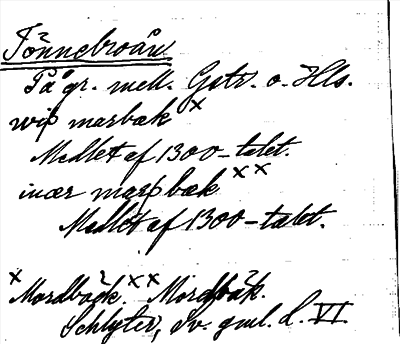 Tönnebroån
På gr. mell. Gstr. o. Hls.
wiþ marbæk ×
Medlet af 1300-talet.
inær marþbæk ××
Medlet af 1300-talet.
× Mordbäck. ×× Mordbäk.
Schlyter, Sv. gml. L. VI